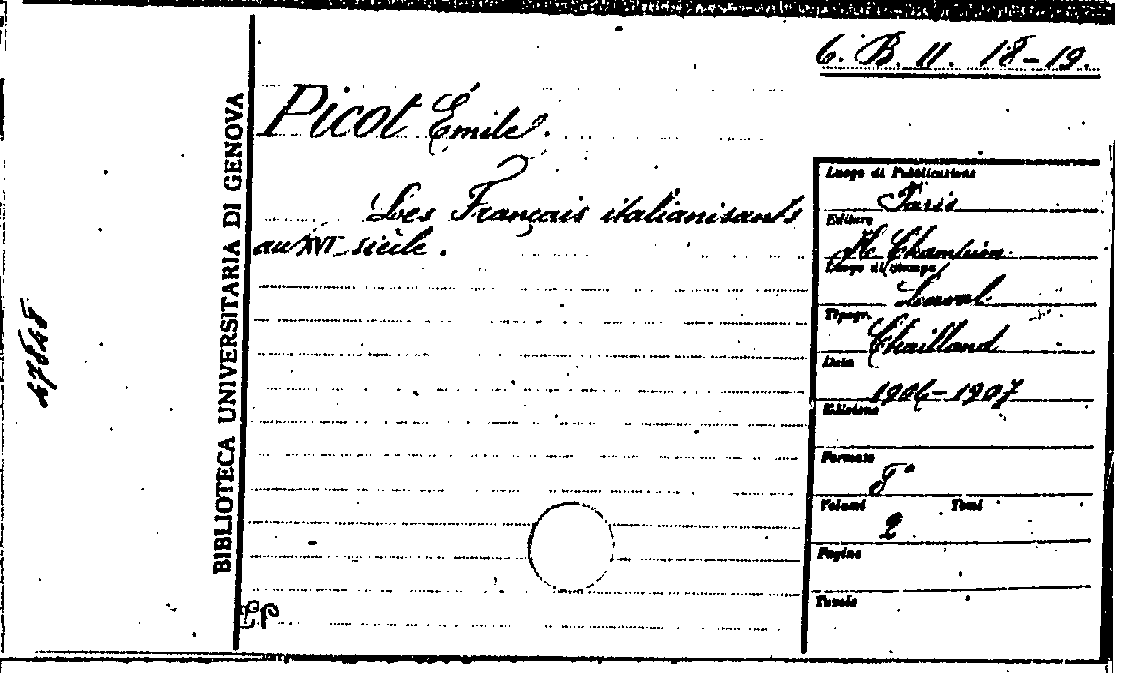 6. B. II. 18-19.
Picot Émile.
Les Français italianisants
au XVI siècle.
BIBLIOTECA UNIVERSITARIA DI GENOVA
Luogo di Pubblicazione
Paris
Editore
H. Champion.
Luogo di stampa
Laval.
Tipogr.
Chailland
Data
1906-1907
Edizione
Formato
8°
Volumi Tomi
2
Pagine
Tavole